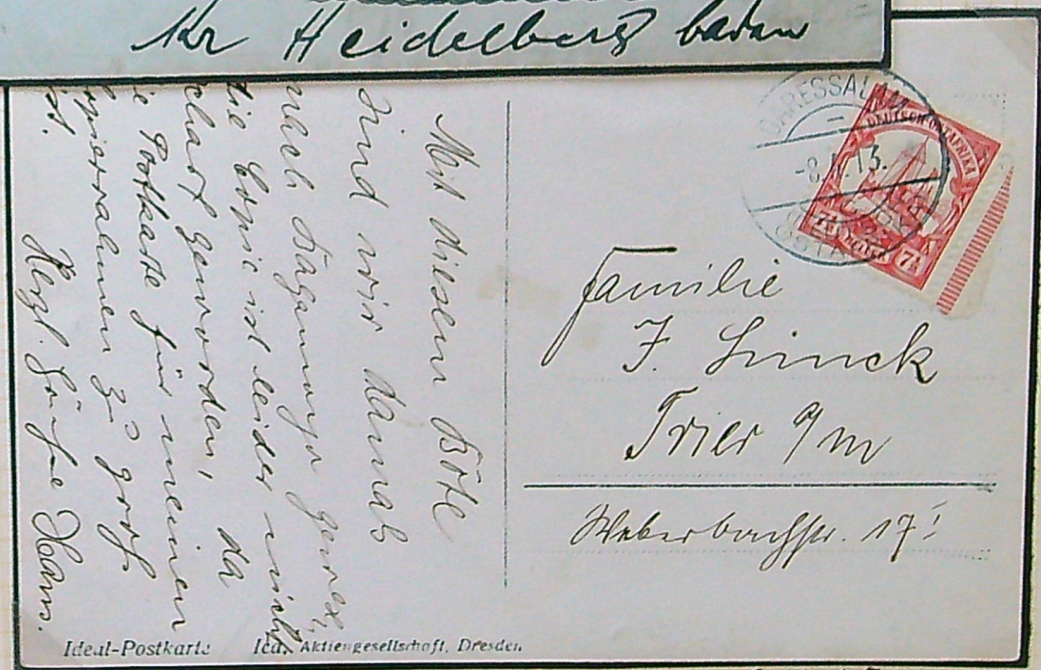 Kr Heidelberg baden
DARESSALAM
-8.4.13.
DEUTSCH OSTAFRIKA
7½
Familie
J. Linck
Trier a/m
Weberbachstr. 17 I
Mit diesem Boote
sind wir damals
nach Bagamoyo gereist,
die Copie ist leider nicht
scharf geworden, da
die Postkarte für meinen
Copierrahmen zu groß
ist.
Herzl. Grüße Hans.
Ideal-Postkarte Ica, Aktiengesellschaft, Dresden.